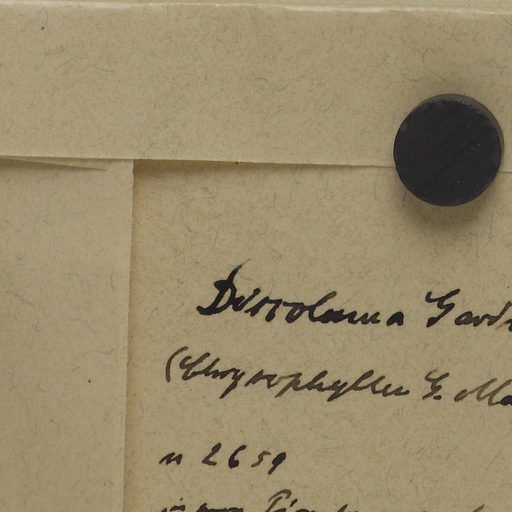 Discolauma Gard
(Chrysophyllu G. Ma
n 2659